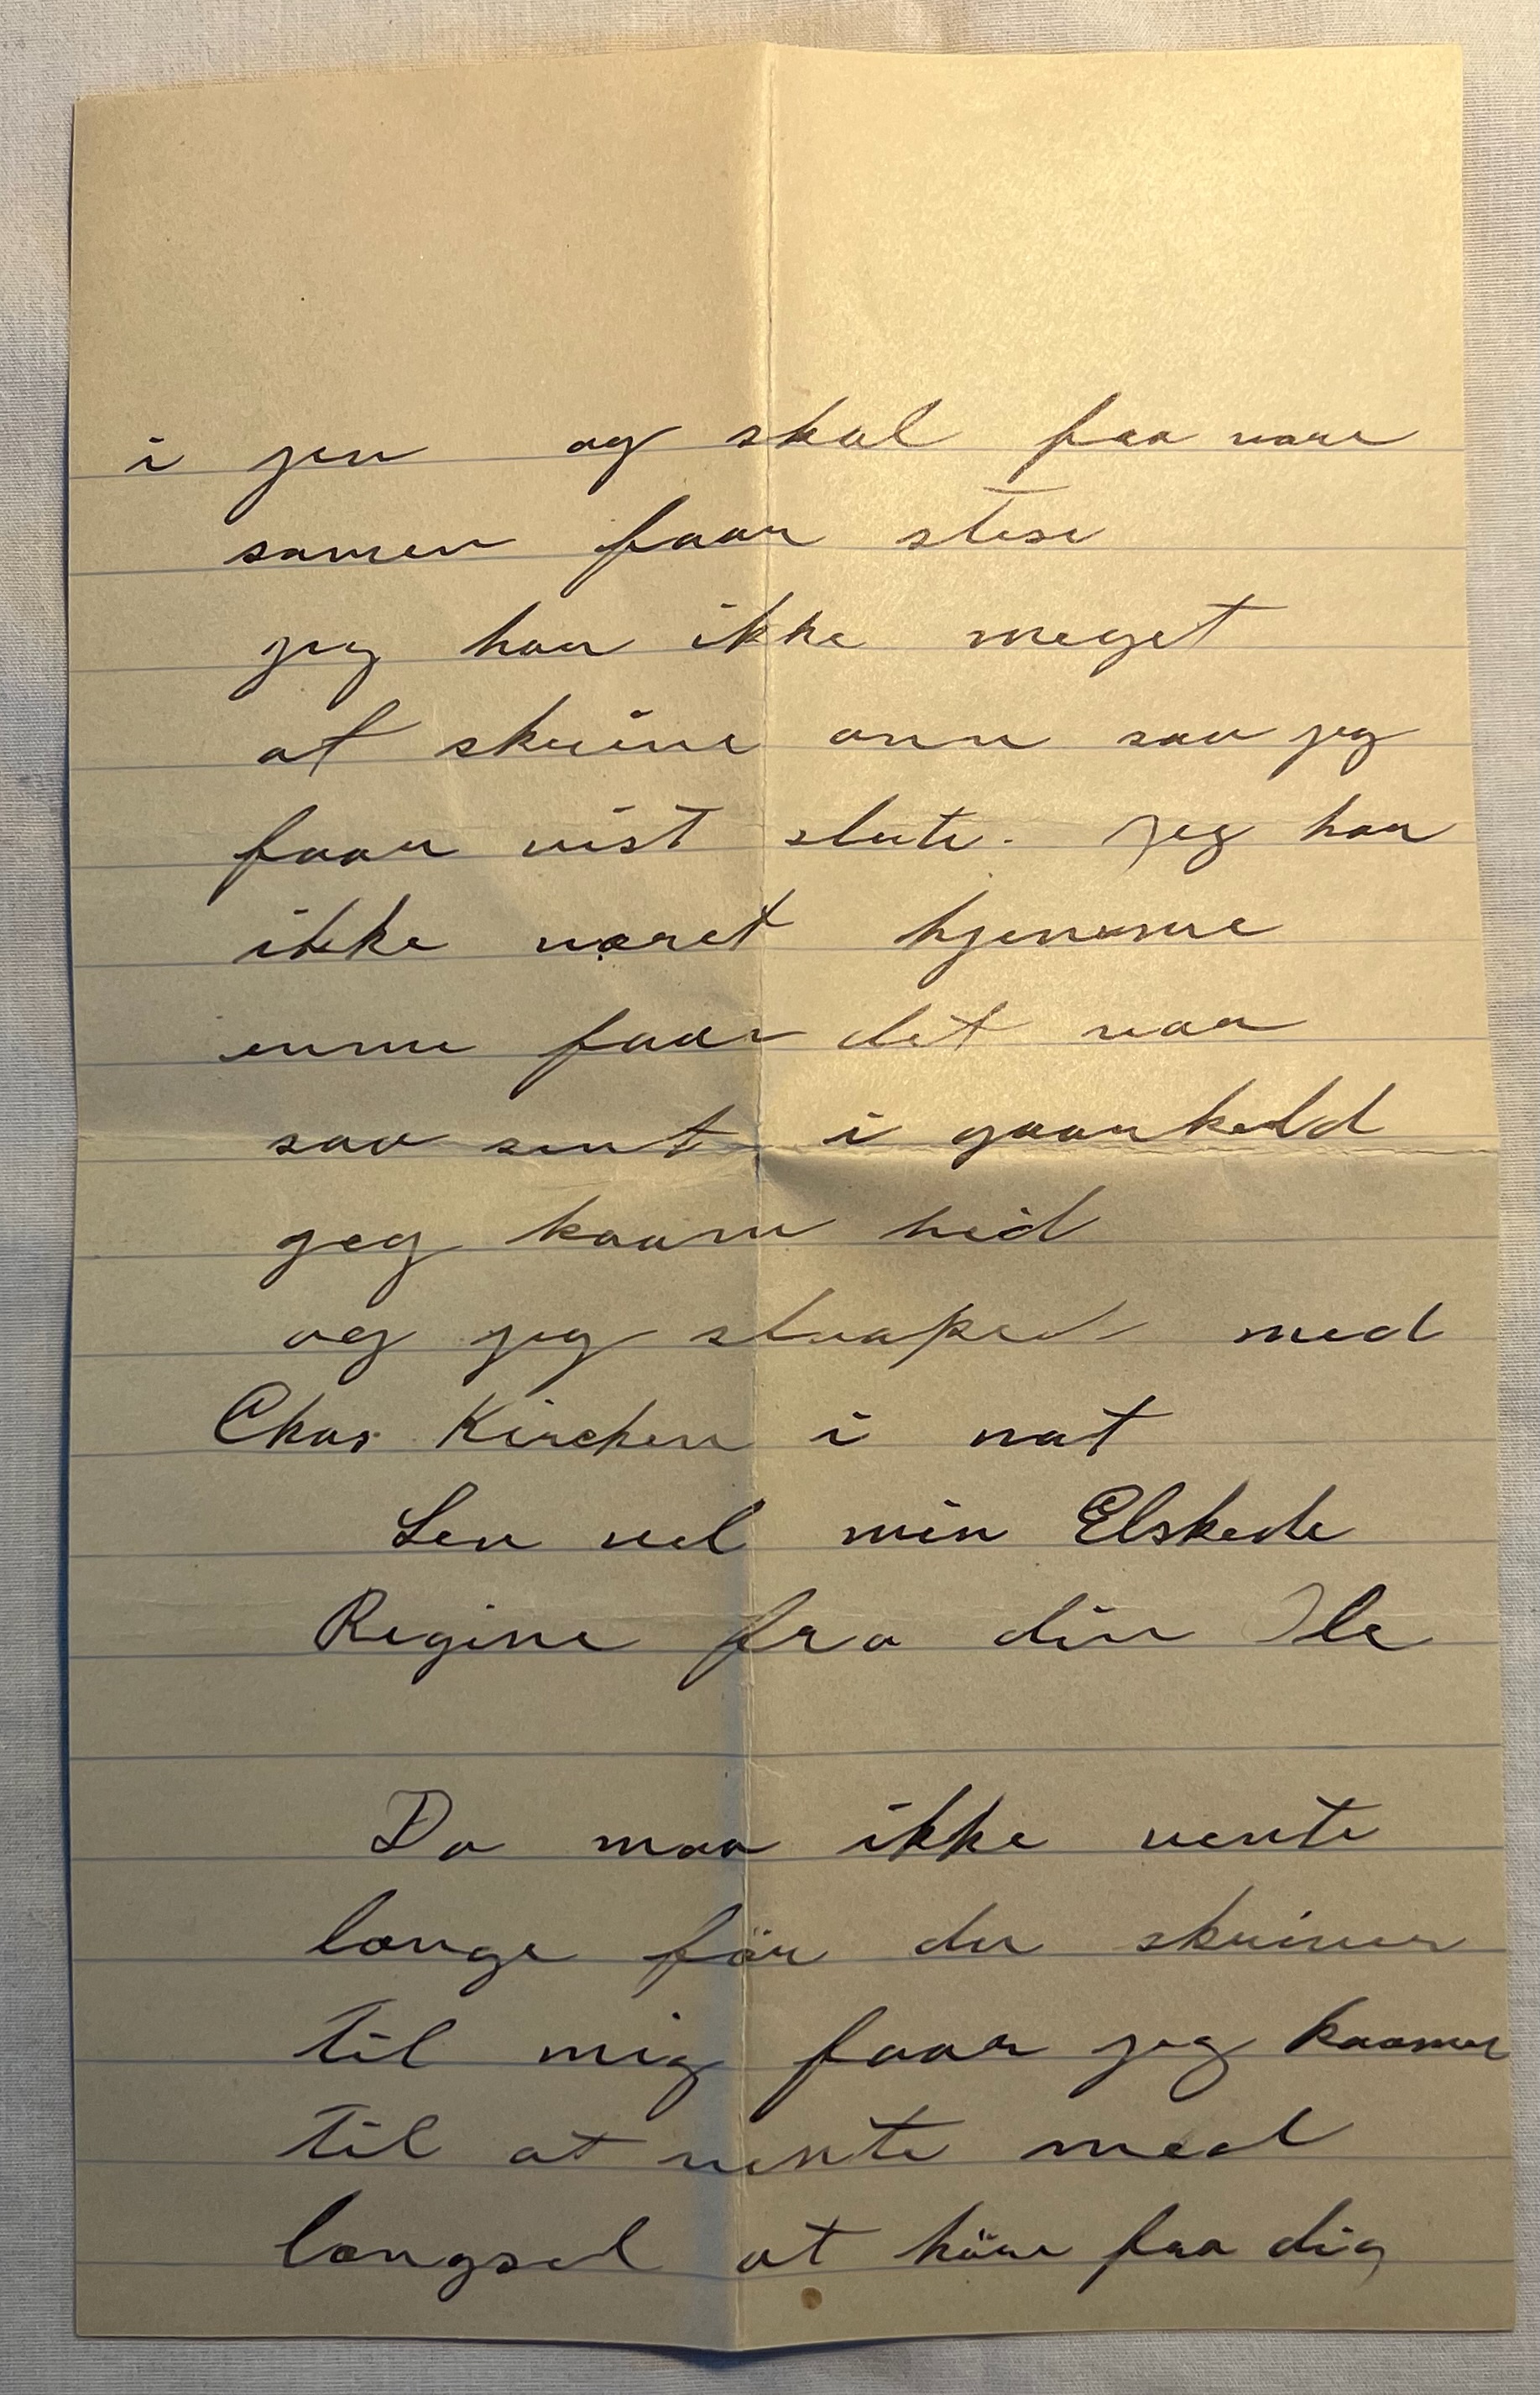 i jen og skal faa være
samen faar stese
jeg har ikke meget
at skrive omm saa jeg
faar vist slute. Jeg har
ikke været hjemme
ennu faar det var
saa sent i gaarkeld
jeg kaam hid
og jeg slaaped med
Chas Kirchen i nat
Lev vel min Elskede
Regine fra din Ole
Do maa ikke vente
længe för du skriver
til mig faar jeg kaamer
til at vente med
længsel at höre fra dig